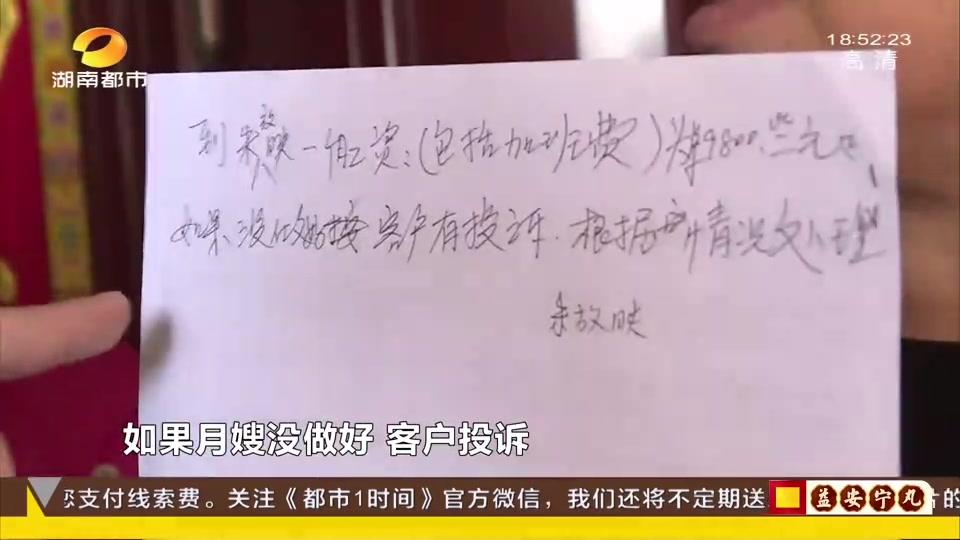 湖南都市
18:52:23
高清
到朱放映一月工资:(包括加班费)为9800元
如果没做好接客户有投诉.根据户情况处理
朱放映
如果月嫂没做好 客户投诉
支付线索费。关注《都市1时间》官方微信,我们还将不定期送
益安宁丸
片的